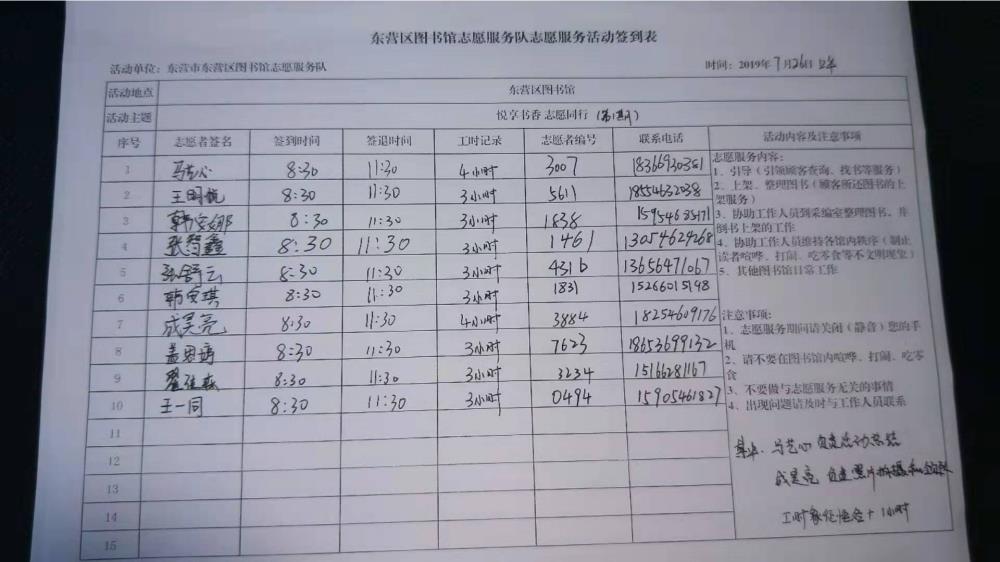 东营区图书馆志愿服务队志愿服务活动签到表
活动单位：东营市东营区图书馆志愿服务队
时间：2019年7月26日
活动地点 东营区图书馆
活动主题 悦享书香 志愿同行
序号 志愿者签名 签到时间 签退时间 工时记录 志愿者编号 联系电话 活动内容及注意事项
1 马艺心 8:30 11:30 4小时 3007
2 8:30 11:30 3小时 5611 18554632038
3 韩安娜 8:30 11:30 3小时 1838
4 张智鑫 8:30 11:30 3小时 1461 13054629268
5 张舒云 8:30 11:30 3小时 4316 13656471067
6 韩安琪 8:30 11:30 3小时 1831 15266015198
7 成昊亮 8:30 11:30 4小时 3884 18254609176
8 8:30 11:30 3小时 7623 18653699132
9 8:30 11:30 3小时 3234 15166281167
10 王一同 8:30 11:30 3小时 0494 15905461827
11
12
13
14
15
志愿服务内容：
1、引导（引领顾客查询、找书等服务）
2、上架、整理图书（顾客所还图书的上
架服务）
3、协助工作人员到采编室整理图书，并
倒书上架的工作
4、协助工作人员维持各馆内秩序（制止
读者喧哗、打闹、吃零食等不文明现象）
5、其他图书馆日常工作
注意事项：
1、志愿服务期间请关闭（静音）您的手
机
2、请不要在图书馆内喧哗、打闹、吃零
食
3、不要做与志愿服务无关的事情
4、出现问题请及时与工作人员联系
马艺心 负责活动总结
成昊亮 负责照片拍摄和
工时 +1小时